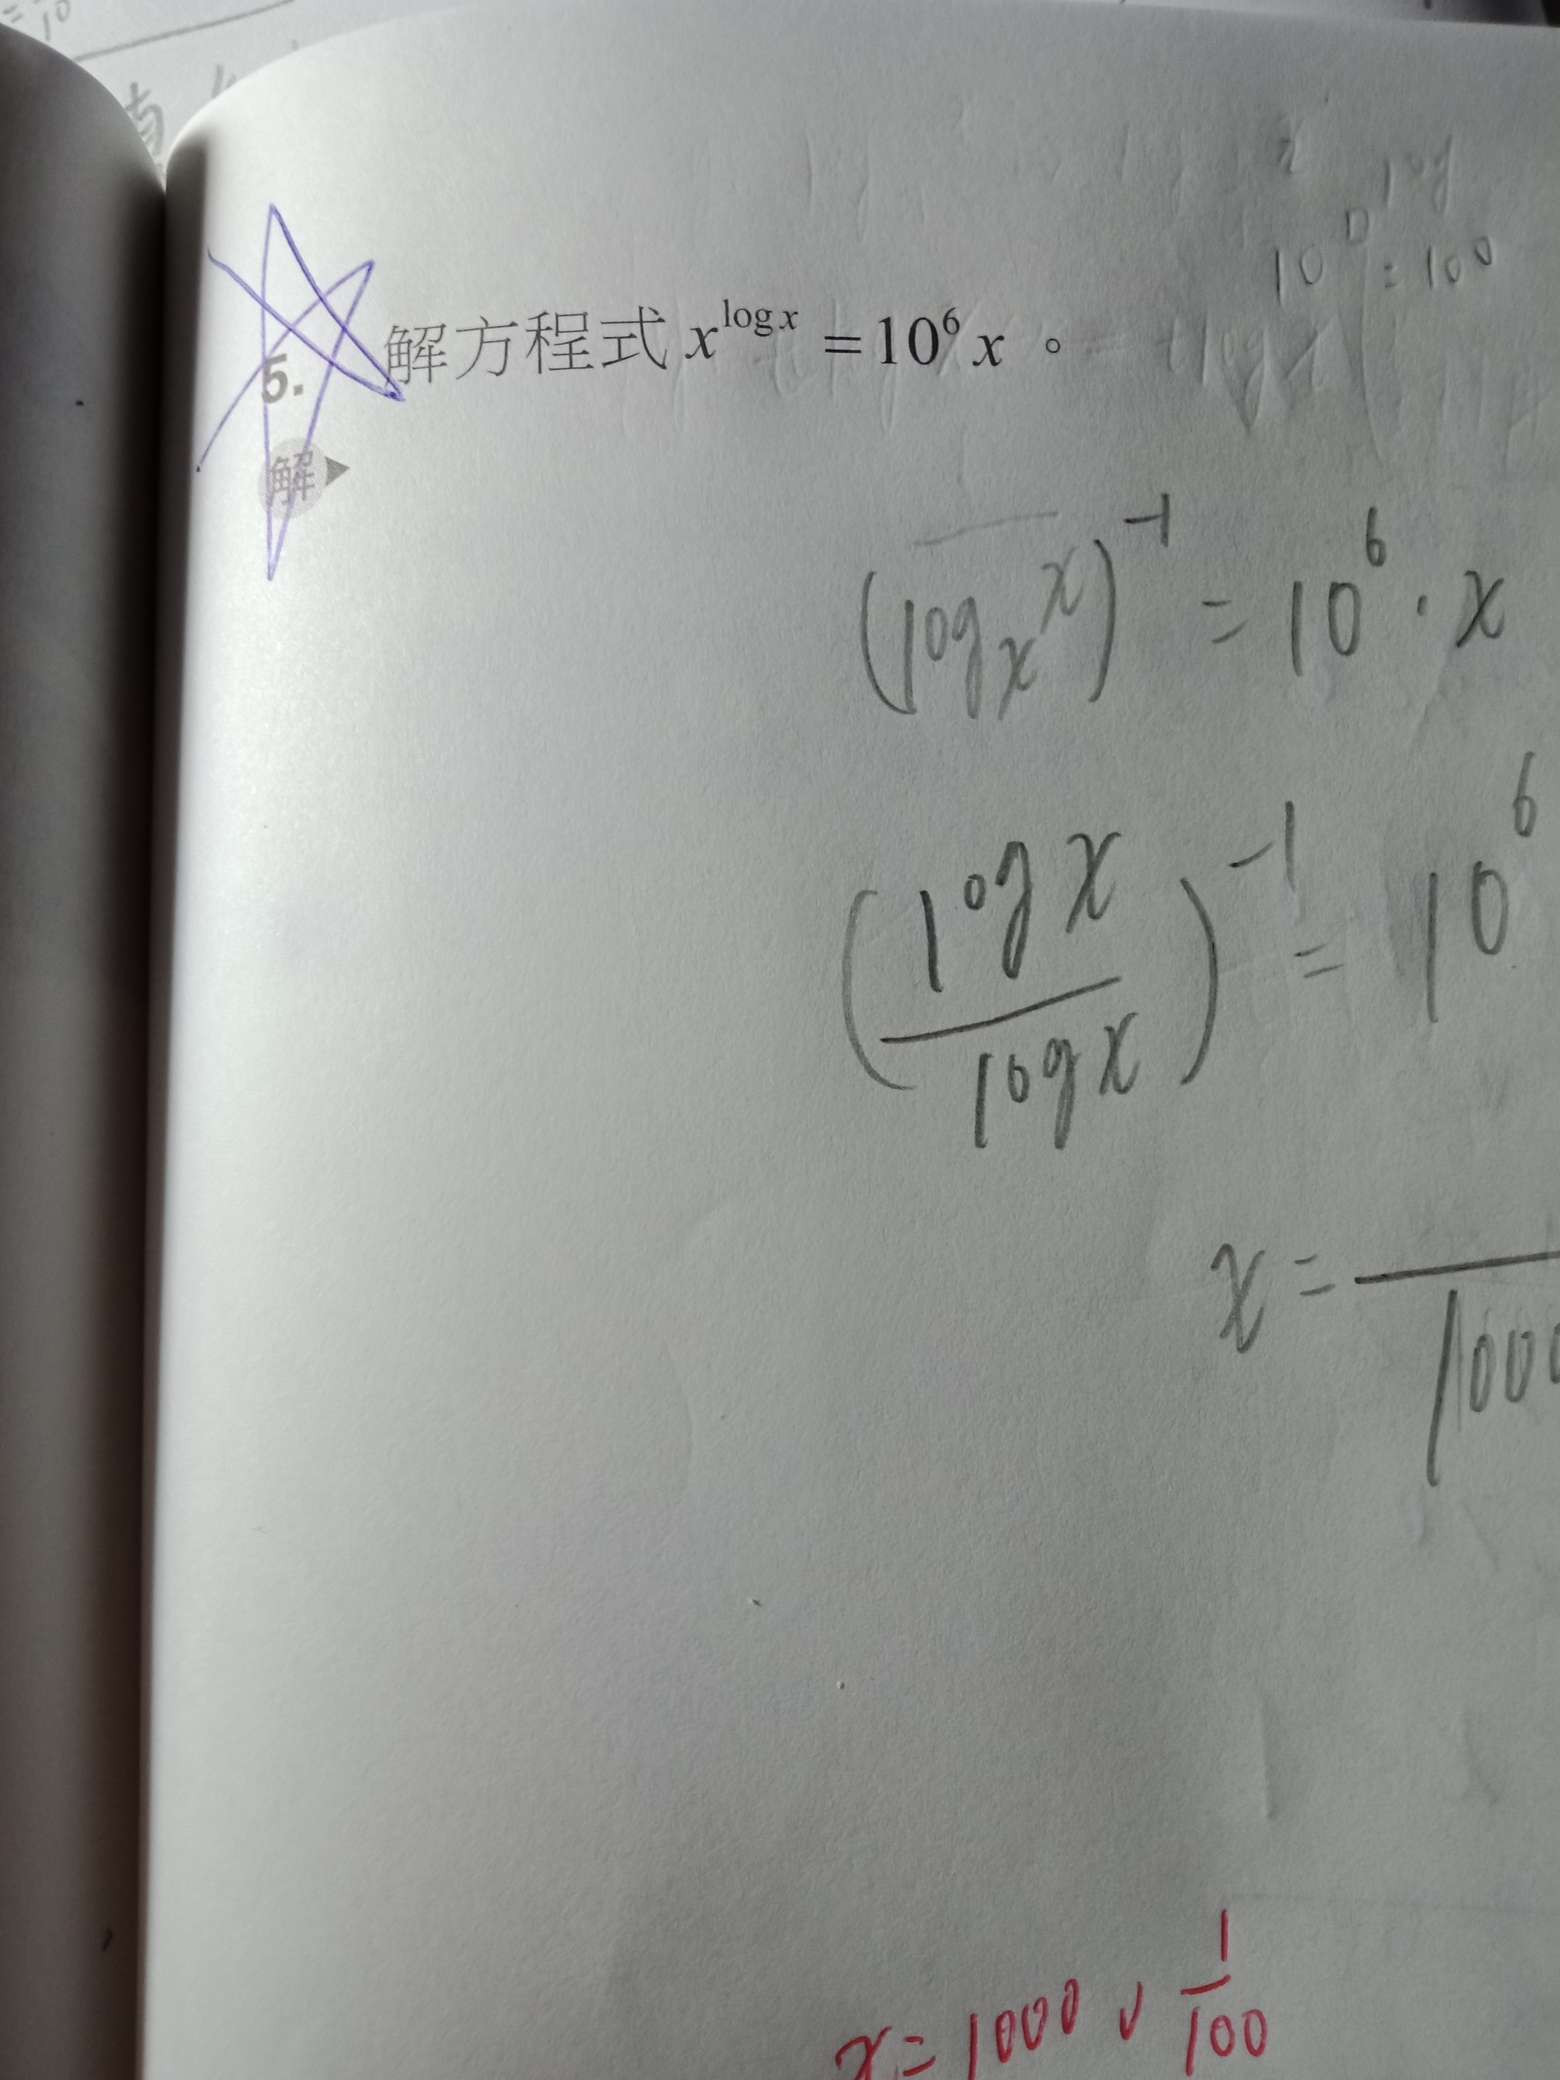 = 10
log
10 = 100
5. 解方程式 x^{log x} = 10⁶ x 。
解▶
(log_x x)⁻¹ = 10⁶ · x
(log x / log x)⁻¹ = 10⁶
x = 
1000
x = 1000 ∨ 1/100